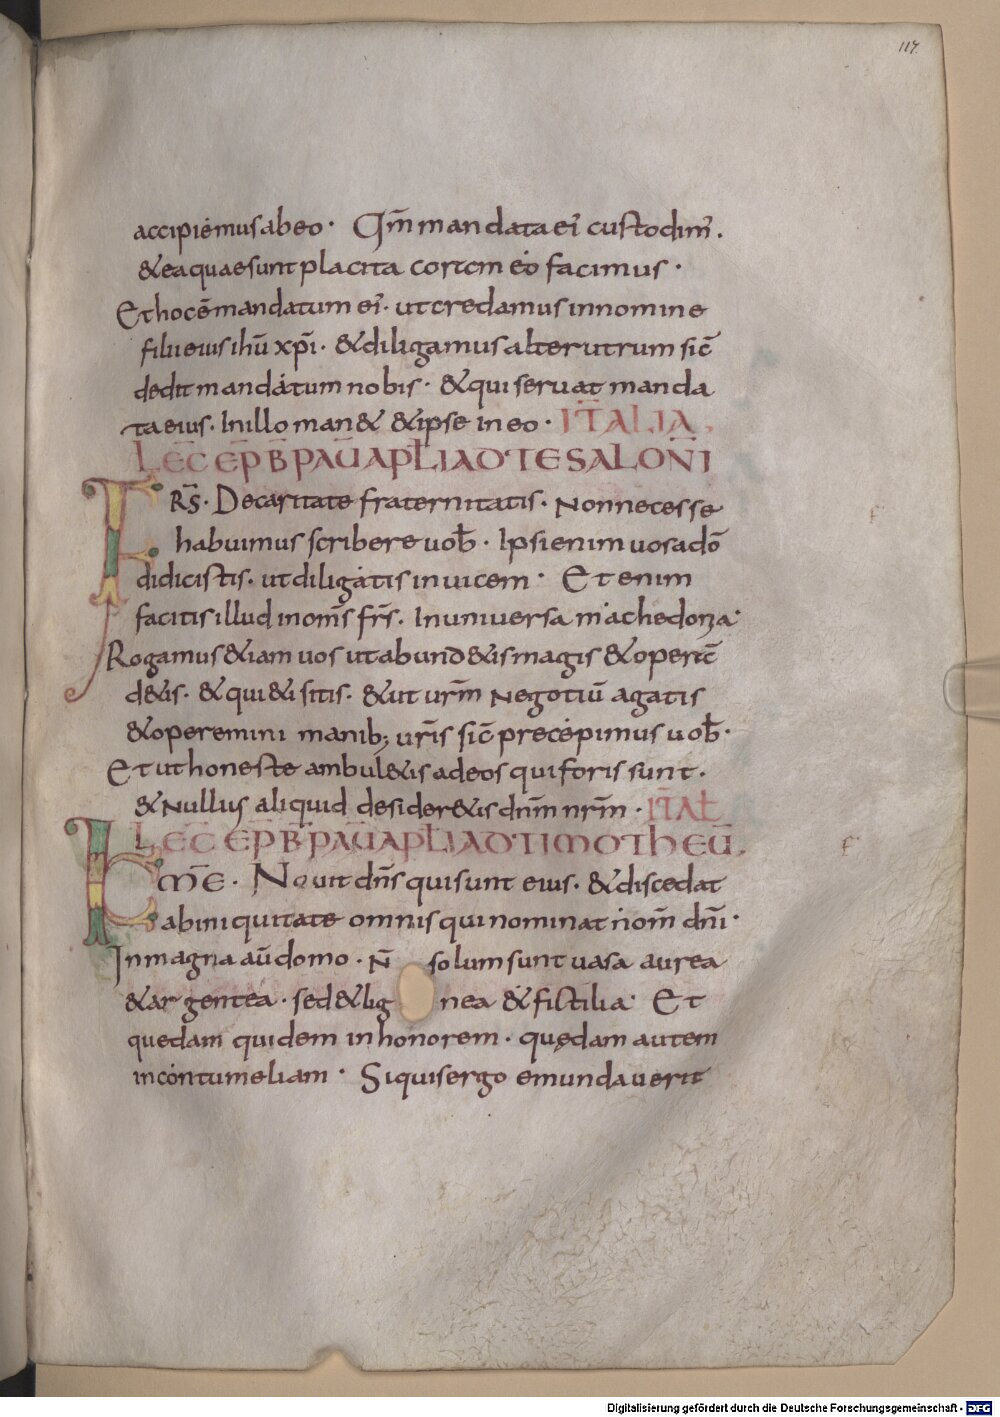 117.
accipiemus ab eo · Qm̄ mandata ei᾿ custodim᾿.
& ea quae sunt placita cortcm eo facimus ·
Et hoc ē mandatum ei᾿· ut credamus in nomine
filii eius ihū xp̄i · & diligamus alterutrum sic̄
dedit mandatum nobis · & qui seruat manda
ta eius · In illo man& & ipse in eo · IT̄ ALIA.
LEC̄ EP̄ B PAU̅ APLI AD TESALON̄I
FRS̄ · De caritate fraternitatis · Non necesse
habuimus scribere uob̄ · Ipsi enim uos a dō
didicistis · ut diligatis inuicem · Et enim
facitis illud in om̄s fr̄s · In uniuersa machedonia·
Rogamus & iam uos ut abund&is magis & operc̄
d&is · & qui &i sitis · & ut ur̄m Negotiū agatis
& operemini manib; ur̄is sic̄ precepimus uob̄·
Et ut honeste ambul&is ad eos qui foris sunt ·
& Nullus aliquid desider&is dn̄m nr̄m · IT̄ AŁ
LEC̄ EP̄ B PAU̅ APLI AD TIMOTHEU̅.
KM̄E · Nouit dn̄s qui sunt eius · & discedat
ab iniquitate omnis qui nominat nom̄ dn̄i·
In magna aū domo · N̄ solum sunt uasa aurea
& argentea · sed & lignea & fictilia· Et
quedam quidem in honorem · quędam autem
in contumeliam · Si quis ergo emundauerit
f
f
Digitalisierung gefördert durch die Deutsche Forschungsgemeinschaft - DFG